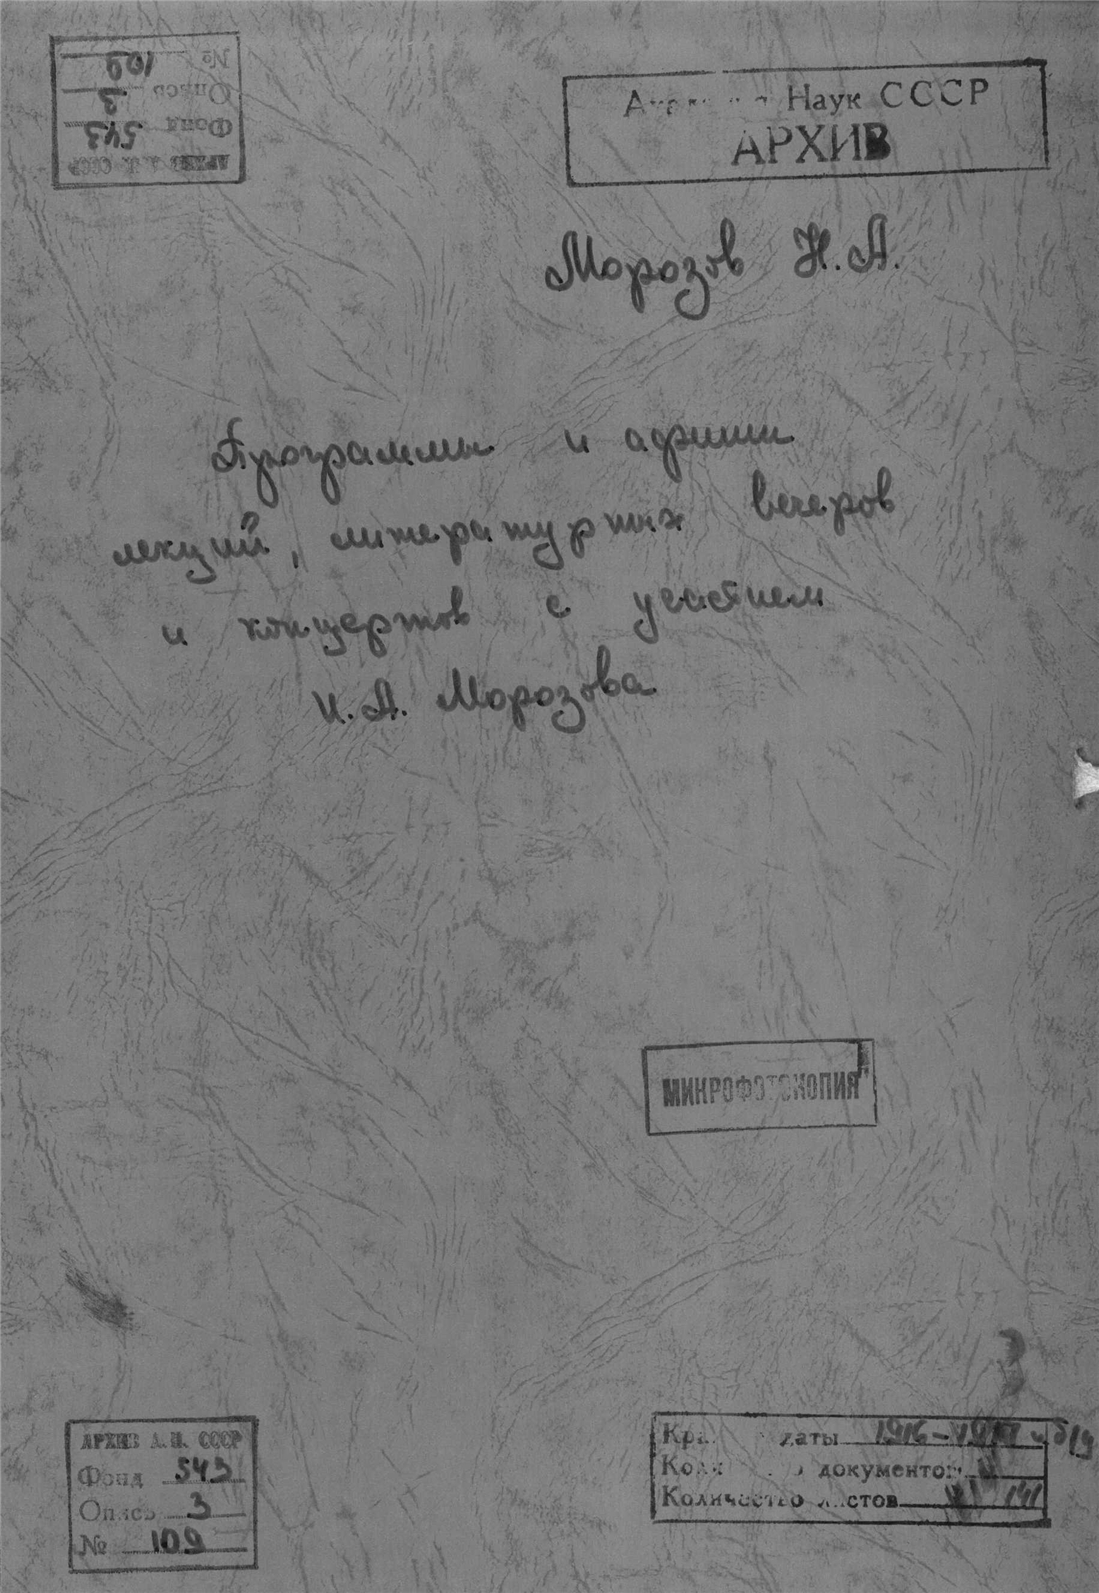 № 109
Опись 3
Фонд 543
АРХИВ А. Н. СССР
Наук СССР
АРХИВ
Морозов Н. А.
Программы и афиши
лекций, литературных вечеров
и концертов с участием
Н. А. Морозова
МИКРОФОТОКОПИЯ
АРХИВ А. Н. СССР
Фонд 543
Опись 3
№ 109
даты
документов
Количество листов 141